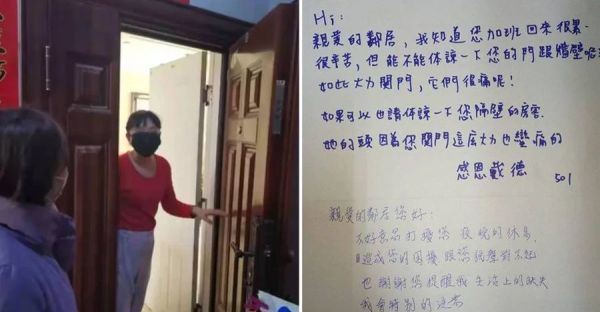 Hi:
親愛的鄰居，我知道您加班回來很累、
很辛苦，但能不能体諒一下您的門跟牆壁呢
如此大力関門，它們很痛呢！
如果可以也請体諒一下您隔壁的房客
她的頭因為您関門這麼大力也蠻痛的
感恩戴德
501
親愛的鄰居您好：
不好意思打擾您 夜晚的休息，
造成您的困擾 跟您說聲對不起
也謝謝您提醒我 生活上的缺失
我會特別的注意